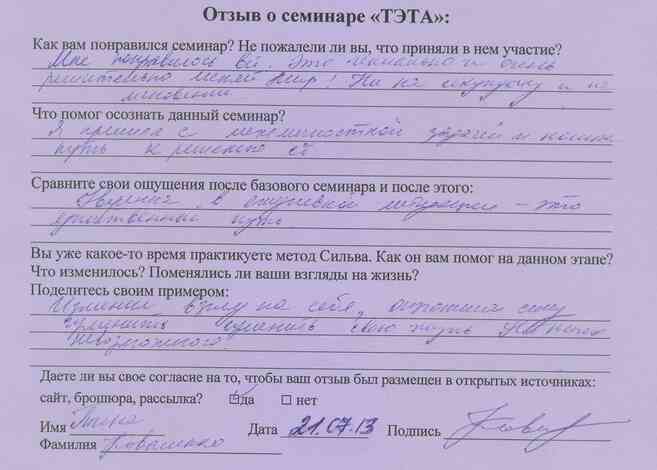 Отзыв о семинаре «ТЭТА»:
Как вам понравился семинар? Не пожалели ли вы, что приняли в нем участие?
Мне понравилось всё. Это и очень
решительно меняй мир! Ни на секундочку и не
мгновения
Что помог осознать данный семинар?
Я пришла с задачей и нашла
путь к решению её
Сравните свои ощущения после базового семинара и после этого:
в ситуации – это
единственный путь
Вы уже какое-то время практикуете метод Сильва. Как он вам помог на данном этапе?
Что изменилось? Поменялись ли ваши взгляды на жизнь?
Поделитесь своим примером:
Изменил взгляд на себя, силу
изменить свою жизнь Нет ничего
невозможного
Даете ли вы свое согласие на то, чтобы ваш отзыв был размещен в открытых источниках:
сайт, брошюра, рассылка? да нет
Имя Дата 21.07.13 Подпись
Фамилия Коваленко